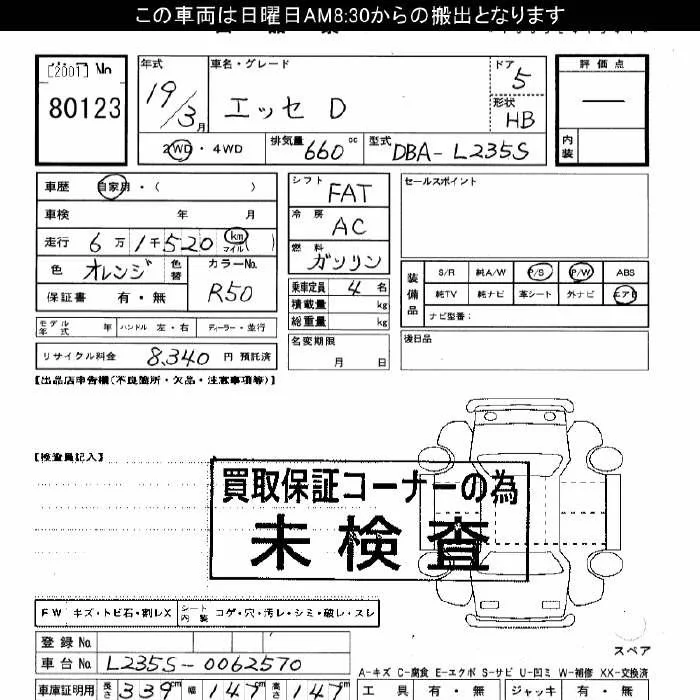 この車両は日曜日AM8:30からの搬出となります
[2001] No
80123
年式 19/3月
車名・グレード エッセ D
ドア 5
形状 HB
評価点
内装
2WD・4WD 排気量 660cc 型式 DBA-L235S
車歴 自家用・( )
車検 年 月
走行 6万1千520 km マイル ( )
色 オレンジ 色替 カラーNo. R50
保証書 有・無
シフト FAT
冷房 AC
燃料 ガソリン
乗車定員 4名
積載量 kg
総重量 kg
名変期限
月 日
セールスポイント
装備品
S/R 純A/W P/S P/W ABS
純TV 純ナビ 革シート 外ナビ エアB
ナビ型番:
後日品
モデル年式 年 ハンドル 左・右 ディーラー・並行
リサイクル料金 8,340 円 預託済
【出品店申告欄(不良箇所・欠品・注意事項等)】
【検査員記入】
買取保証コーナーの為
未検査
FW キズ・トビ石・割レX シート内装 コゲ・穴・汚レ・シミ・破レ・スレ
登録No.
車台No. L235S-0062570
車庫証明用 長さ 339cm 幅 147cm 高さ 147cm
スペア
A-キズ C-腐食 E-エクボ S-サビ U-凹ミ W-補修 XX-交換済
工具 有・無 ジャッキ 有・無